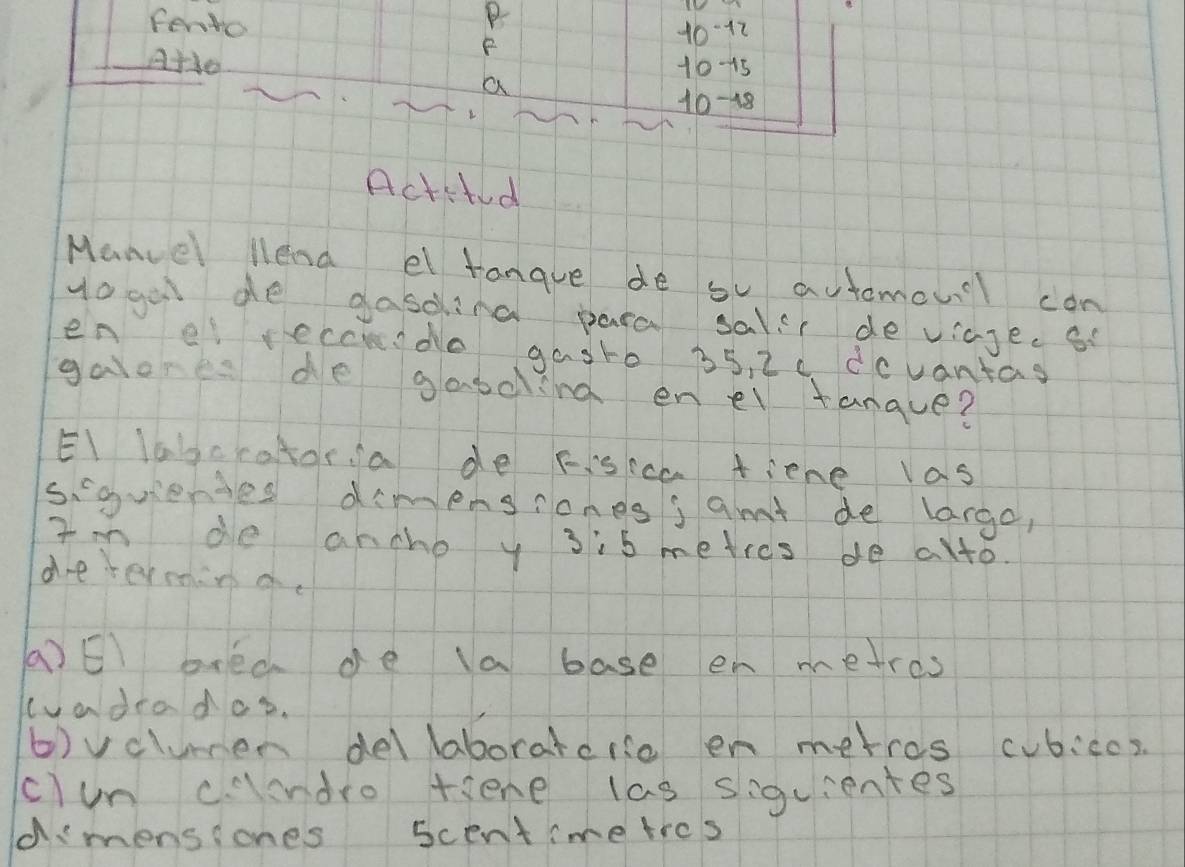 Fento P 10-12
Atto F 10-15
a 10-18
Actitud
Manuel llena el tanque de su automovil con
10 gal de gasolina para salir de viaje. si
en el recorrido gasto 35,2 L ¿cuantas
galones de gasolina en el tanque?
El laboratoria de Fisica tiene las
siguientes dimensiones; 9mt de largo,
7 m de ancho y 3;5 metros de alto.
determina.
a) El area de la base en metros
cuadrados.
b) volumen del laboratorio en metros cubicos.
c) un cilindro tiene las siguientes
dimensiones 5centimetros